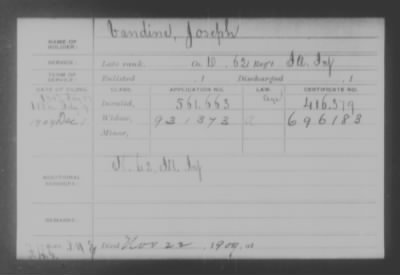 Vandine, Joseph
NAME OF SOLDIER:
SERVICE: Late rank, Co. D, 62 Reg't Ill. Inf
TERM OF SERVICE: Enlisted , 1 Discharged , 1
DATE OF FILING. CLASS. APPLICATION NO. LAW. CERTIFICATE NO.
Invalid, 561.663 416.379
1909 Dec 1 Widow, 931373 696183
Minor,
ADDITIONAL SERVICES: 62, Ill. Inf
REMARKS:
Died Nov 22, 1909, at